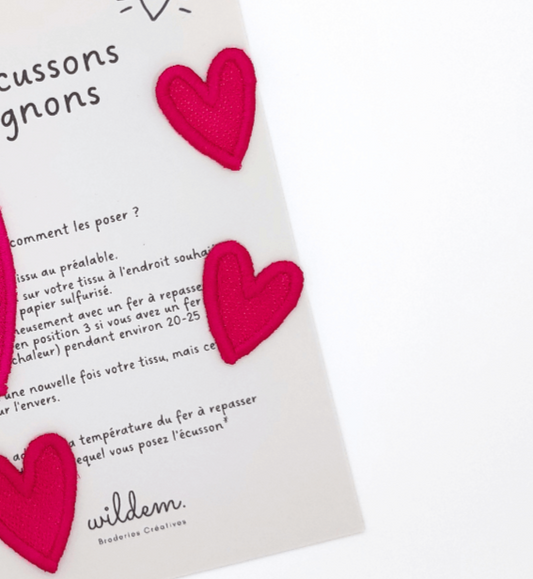 cussons
gnons
comment les poser ?
issu au préalable.
sur votre tissu à l'endroit souhai
papier sulfurisé.
eusement avec un fer à repasse
en position 3 si vous avez un fer
chaleur) pendant environ 20-25
une nouvelle fois votre tissu, mais ce
ur l'envers.
a température du fer à repasser
equel vous posez l'écusson*
wildem.
Broderies Créatives